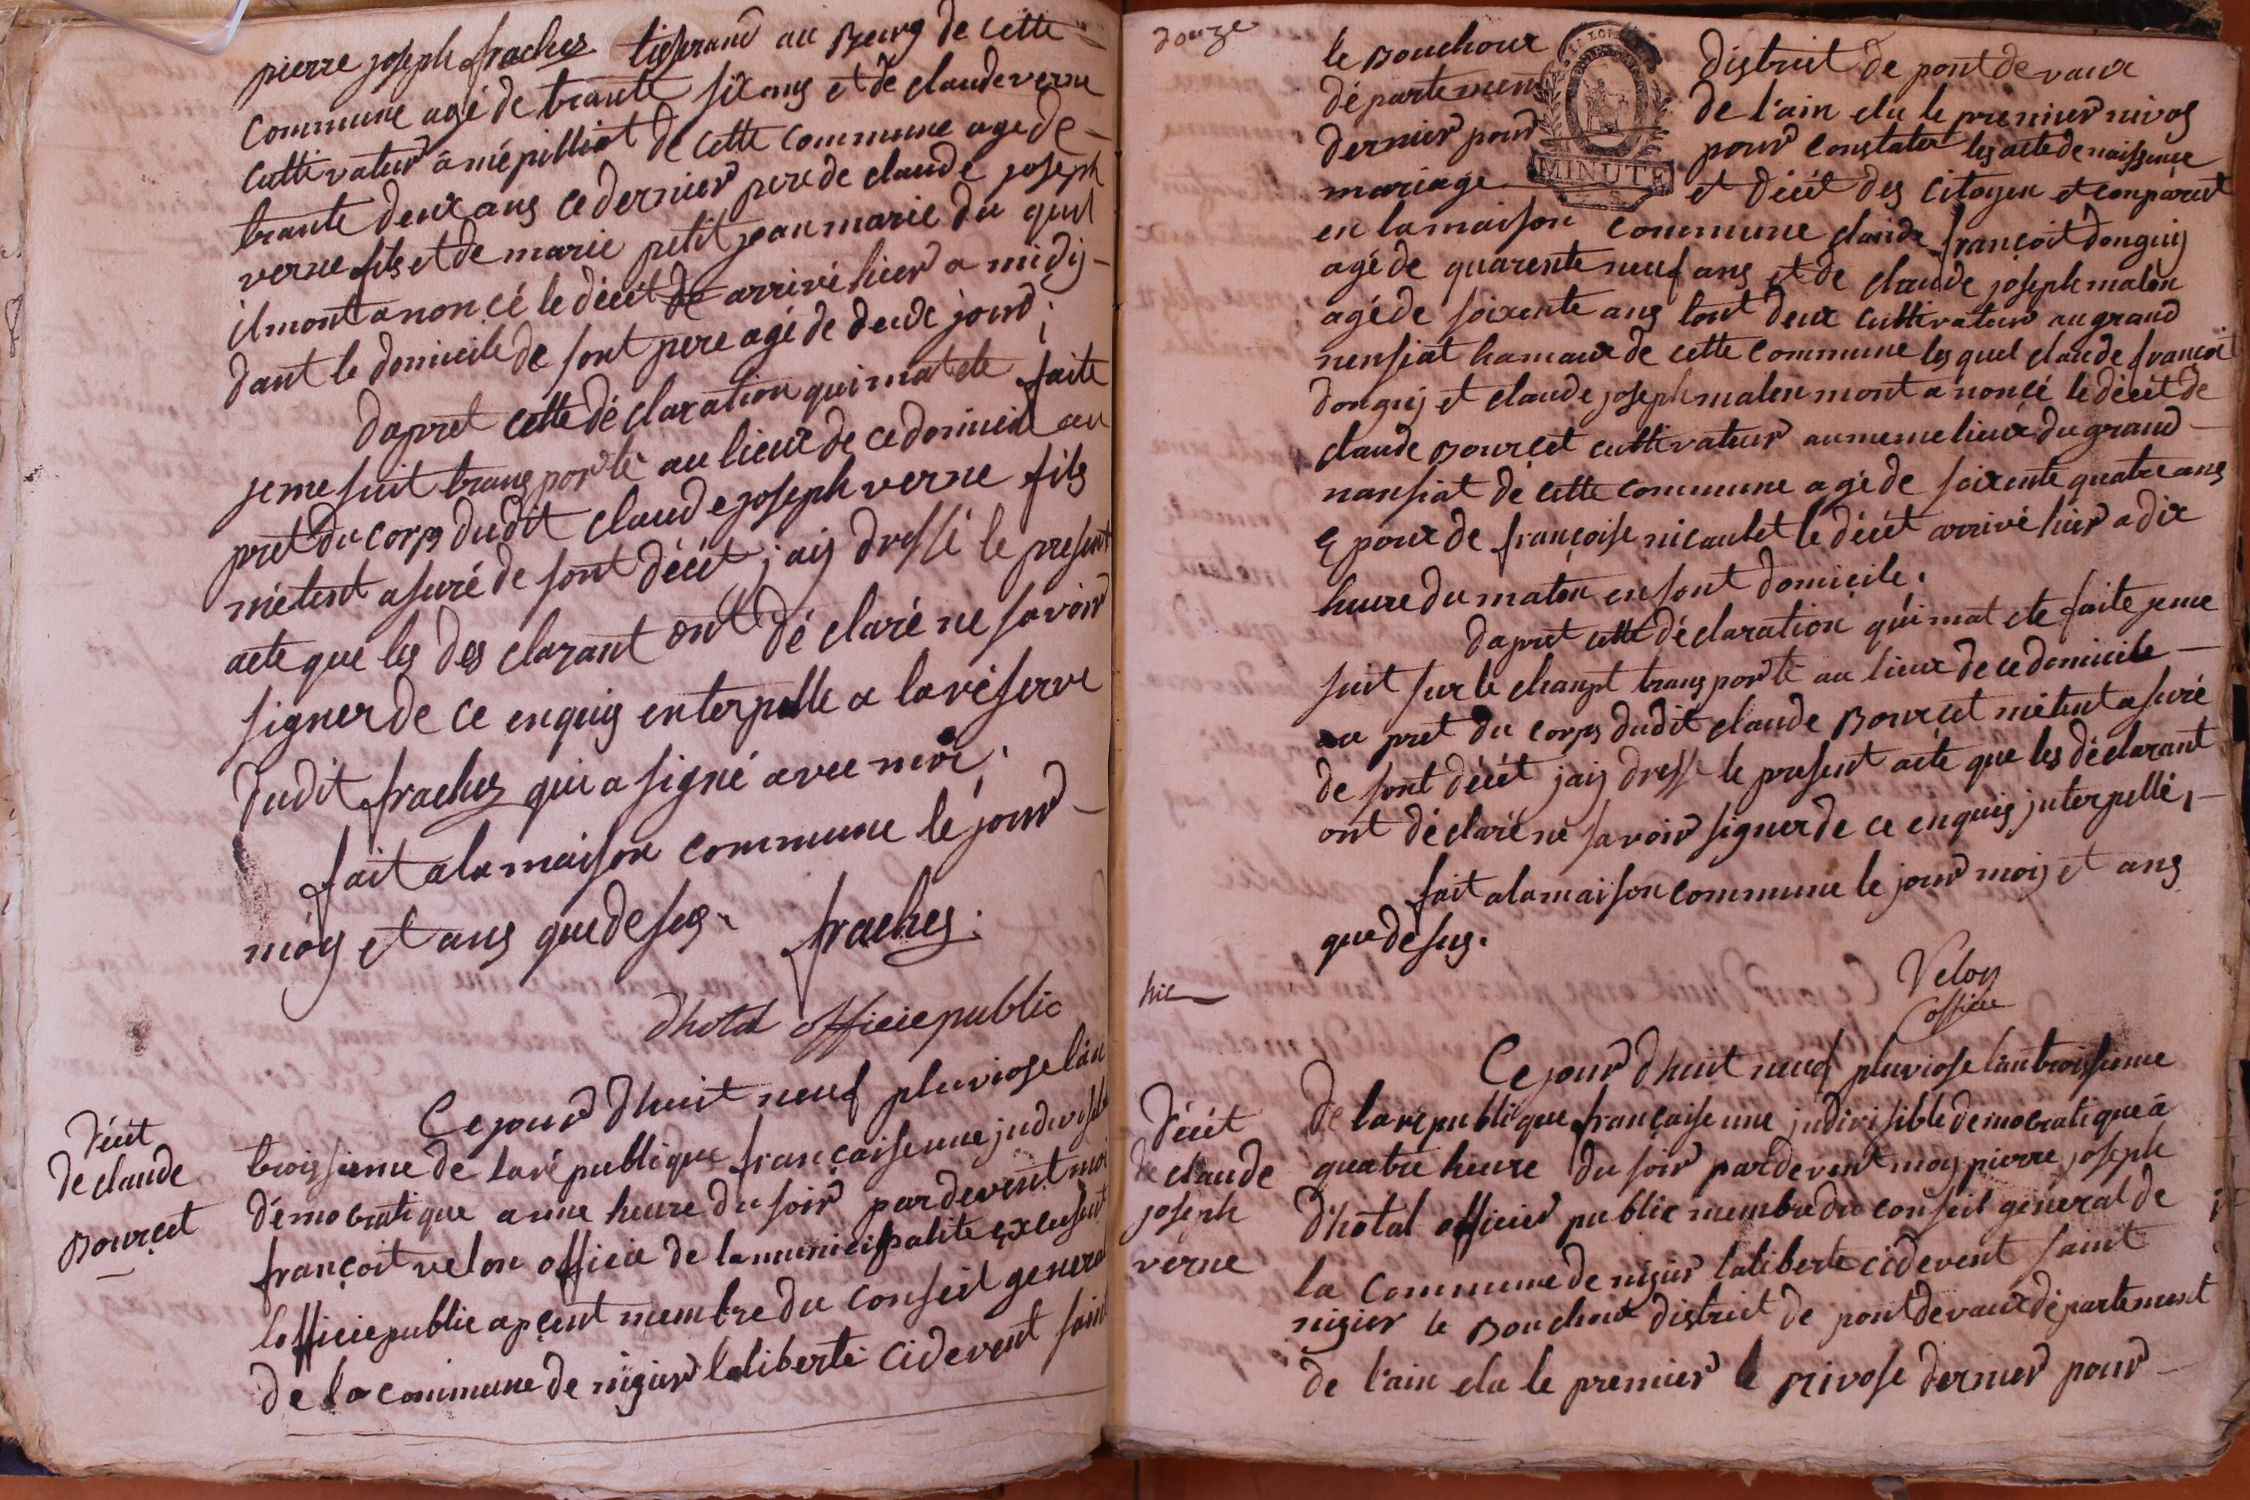 pierre joseph frachez tisserand au Bourg de cette
commune agé de trante six ans et de claude verne
cultivateur à mépilliat de cette commune age de
trante deux ans ce dernier pere de claude joseph
verne fils et de marie petit jean marie du quel
il mont anoncé le décét de arrivé hier a midij
dant le domicile de sont pere agé de deux jourd ;
dapret cette déclaration qui mat ete faite
je me suit transporté au lieux de ce domicile au
pret du corps dudit claude joseph verne fils
métent asuré de sont décét ; jaij dressé le present
acte que les des clarant ont dé claré ne savoir
signer de ce enquis enterpelle a la réserve
dudit frachez qui a signé avec moi.
fait a la maison commune le jourd
moy et ans que desus. frachez.
dhotal officie public
Décét
de claude
Bourcet
Ce jourd dhuit neuf pluviose lan
troissieme de la répubtique françaisse une judivisible
démocratique a une heure du soir par devent moi
françoit velon officie de la municipalite
lofficie public apçent membre du conseil general
de la commune de nigier laliberté cidevent saint
douze
le Bouchoux district de pont de vaux
département de l'ain elu le premier nivos
dernier pour pour constater les acte de naissence
mariage et décét des citoyen et conparut
en la maison commune claude françoit donguij
agé de quarente neuf ans et de claude joseph maton
agé de soixente ans tout deux cultivateur au grand
nensiat hamaux de cette commune les quel claude françoi
donguij et claude joseph maton mont anoncé le décét de
claude Bourcet cultivateur au meme lieux du grand
nansiat de cette commune agé de soixente quatre ans
Epoux de françoise nicaulet le décét arrivé hier a dix
heure du maton en sont domicile.
dapret cette déclaration qui mat ete faite je me
suit sur le chanpt transporté au lieux de ce domicile
au pret du corps dudit claude Bourcet métent asuré
de sont décét jaij dressé le present acte que les déclarant
ont déclaré ne savoir signer de ce enquis jnterpellé,
fait a la maison commune le jour moij et ans
que desus.
Velon
officie
MINUTE
Décét
de claude
joseph
verne
Ce jourd dhuit neuf pluviose lan troissieme
de la republique française une judivisible democratique à
quatre heure du soir par devent moy pierre joseph
d'hotal officier public membre du conseil géneral de
la commune de nigier laliberté cidevent saint
nigier le Bouchoux district de pont de vaux département
de l'ain elu le premier le nivose dernier pour